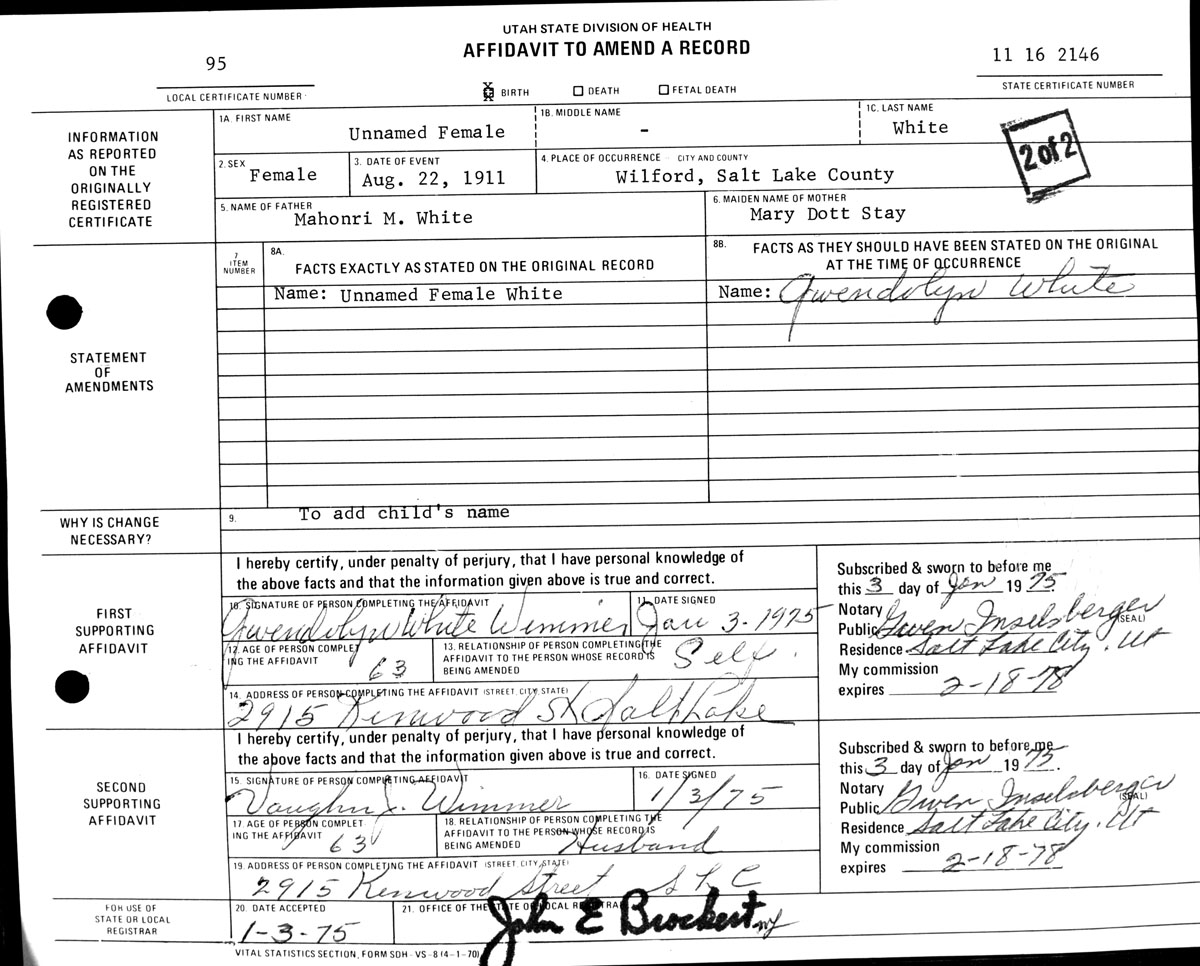 UTAH STATE DIVISION OF HEALTH
AFFIDAVIT TO AMEND A RECORD
95
LOCAL CERTIFICATE NUMBER
11 16 2146
STATE CERTIFICATE NUMBER
BIRTH DEATH FETAL DEATH
INFORMATION AS REPORTED ON THE ORIGINALLY REGISTERED CERTIFICATE
1A. FIRST NAME
Unnamed Female
1B. MIDDLE NAME
-
1C. LAST NAME
White
2 of 2
2. SEX
Female
3. DATE OF EVENT
Aug. 22, 1911
4. PLACE OF OCCURRENCE - CITY AND COUNTY
Wilford, Salt Lake County
5. NAME OF FATHER
Mahonri M. White
6. MAIDEN NAME OF MOTHER
Mary Dott Stay
STATEMENT OF AMENDMENTS
7 ITEM NUMBER
8A. FACTS EXACTLY AS STATED ON THE ORIGINAL RECORD
8B. FACTS AS THEY SHOULD HAVE BEEN STATED ON THE ORIGINAL AT THE TIME OF OCCURRENCE
Name: Unnamed Female White
Name: Gwendolyn White
WHY IS CHANGE NECESSARY?
9. To add child's name
FIRST SUPPORTING AFFIDAVIT
I hereby certify, under penalty of perjury, that I have personal knowledge of
the above facts and that the information given above is true and correct.
10. SIGNATURE OF PERSON COMPLETING THE AFFIDAVIT
Gwendolyn White Wimmer
11. DATE SIGNED
Jan 3-1975
12. AGE OF PERSON COMPLETING THE AFFIDAVIT
63
13. RELATIONSHIP OF PERSON COMPLETING THE AFFIDAVIT TO THE PERSON WHOSE RECORD IS BEING AMENDED
Self.
14. ADDRESS OF PERSON COMPLETING THE AFFIDAVIT (STREET, CITY, STATE)
2915 Kenwood St Salt Lake
Subscribed & sworn to before me
this 3 day of Jan 1975.
Notary Public Gwen Inselsberger
(SEAL)
Residence Salt Lake City, Ut
My commission expires 2-18-78
SECOND SUPPORTING AFFIDAVIT
I hereby certify, under penalty of perjury, that I have personal knowledge of
the above facts and that the information given above is true and correct.
15. SIGNATURE OF PERSON COMPLETING AFFIDAVIT
Vaughn J. Wimmer
16. DATE SIGNED
1/3/75
17. AGE OF PERSON COMPLETING THE AFFIDAVIT
63
18. RELATIONSHIP OF PERSON COMPLETING THE AFFIDAVIT TO THE PERSON WHOSE RECORD IS BEING AMENDED
Husband
19. ADDRESS OF PERSON COMPLETING THE AFFIDAVIT (STREET, CITY, STATE)
2915 Kenwood Street S L C
Subscribed & sworn to before me
this 3 day of Jan 1975.
Notary Public Gwen Inselsberger
(SEAL)
Residence Salt Lake City, Ut
My commission expires 2-18-78
FOR USE OF STATE OR LOCAL REGISTRAR
20. DATE ACCEPTED
1-3-75
21. OFFICE OF THE STATE OR LOCAL REGISTRAR
John E Brockert
VITAL STATISTICS SECTION, FORM SDH-VS-8 (4-1-70)